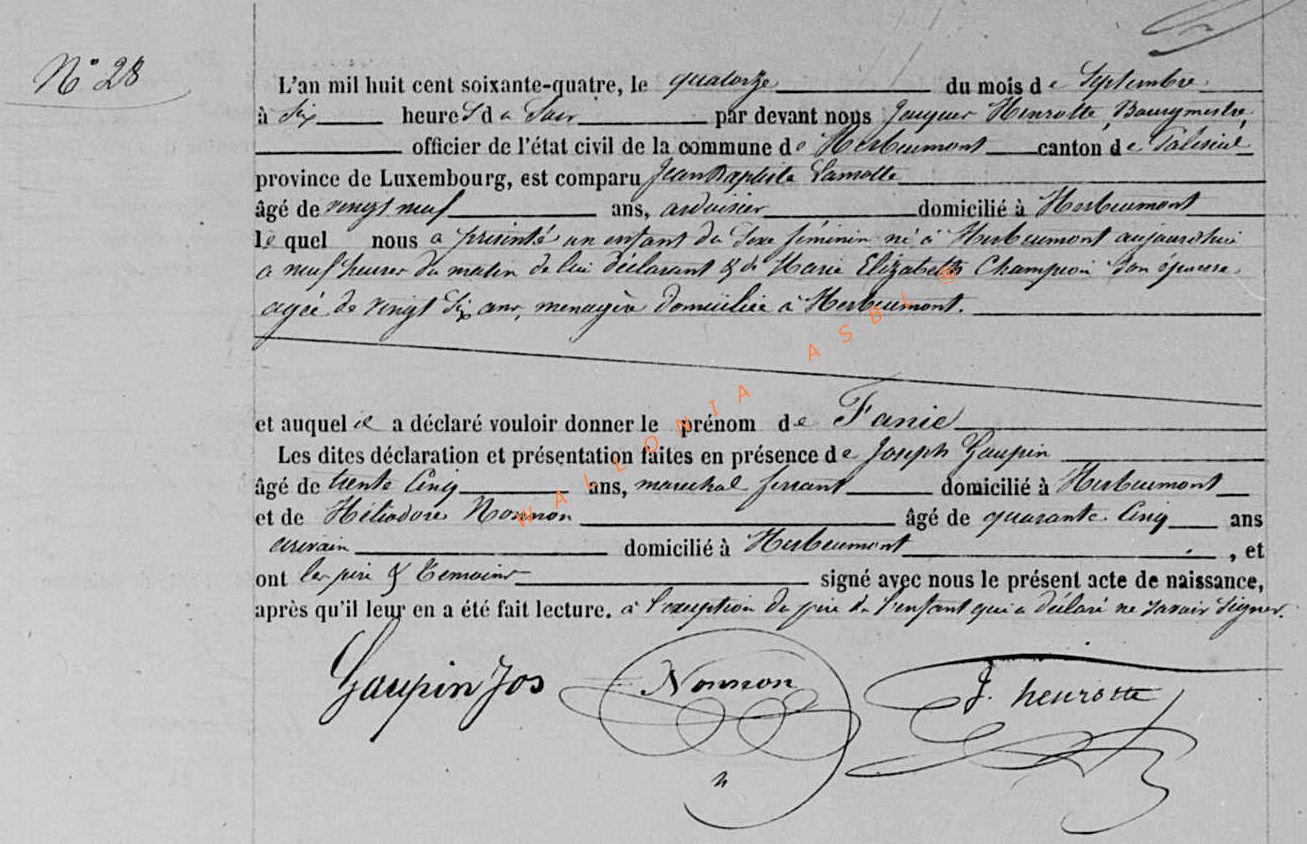 N° 28
L'an mil huit cent soixante-quatre, le quatorze du mois de Septembre
à Six heures du Soir par devant nous Jacques Henrotte, Bourgmestre,
officier de l'état civil de la commune de Herbeumont canton de Paliseul
province de Luxembourg, est comparu Jean Baptiste Lamotte
âgé de vingt neuf ans, ardoisier domicilié à Herbeumont
le quel nous a présenté un enfant du Sexe féminin né à Herbeumont aujourd'hui
a neuf heures du matin de lui déclarant & de Marie Elizabeth Champion Son épouse
agée de vingt Six ans, menagère domiciliée à Herbeumont.
et auquel il a déclaré vouloir donner le prénom de Fanie
Les dites déclaration et présentation faites en présence de Joseph Gaupin
âgé de trente Cinq ans, marechal ferrant domicilié à Herbeumont
et de Héliodore Nonnon âgé de quarante Cinq ans
domicilié à Herbeumont , et
ont les père & Temoins signé avec nous le présent acte de naissance,
après qu'il leur en a été fait lecture. à l'exception du père de l'enfant qui a déclaré ne savoir Signer.
Gaupin Jos Nonnon J. henrotte
WALLONIA ASBL ®